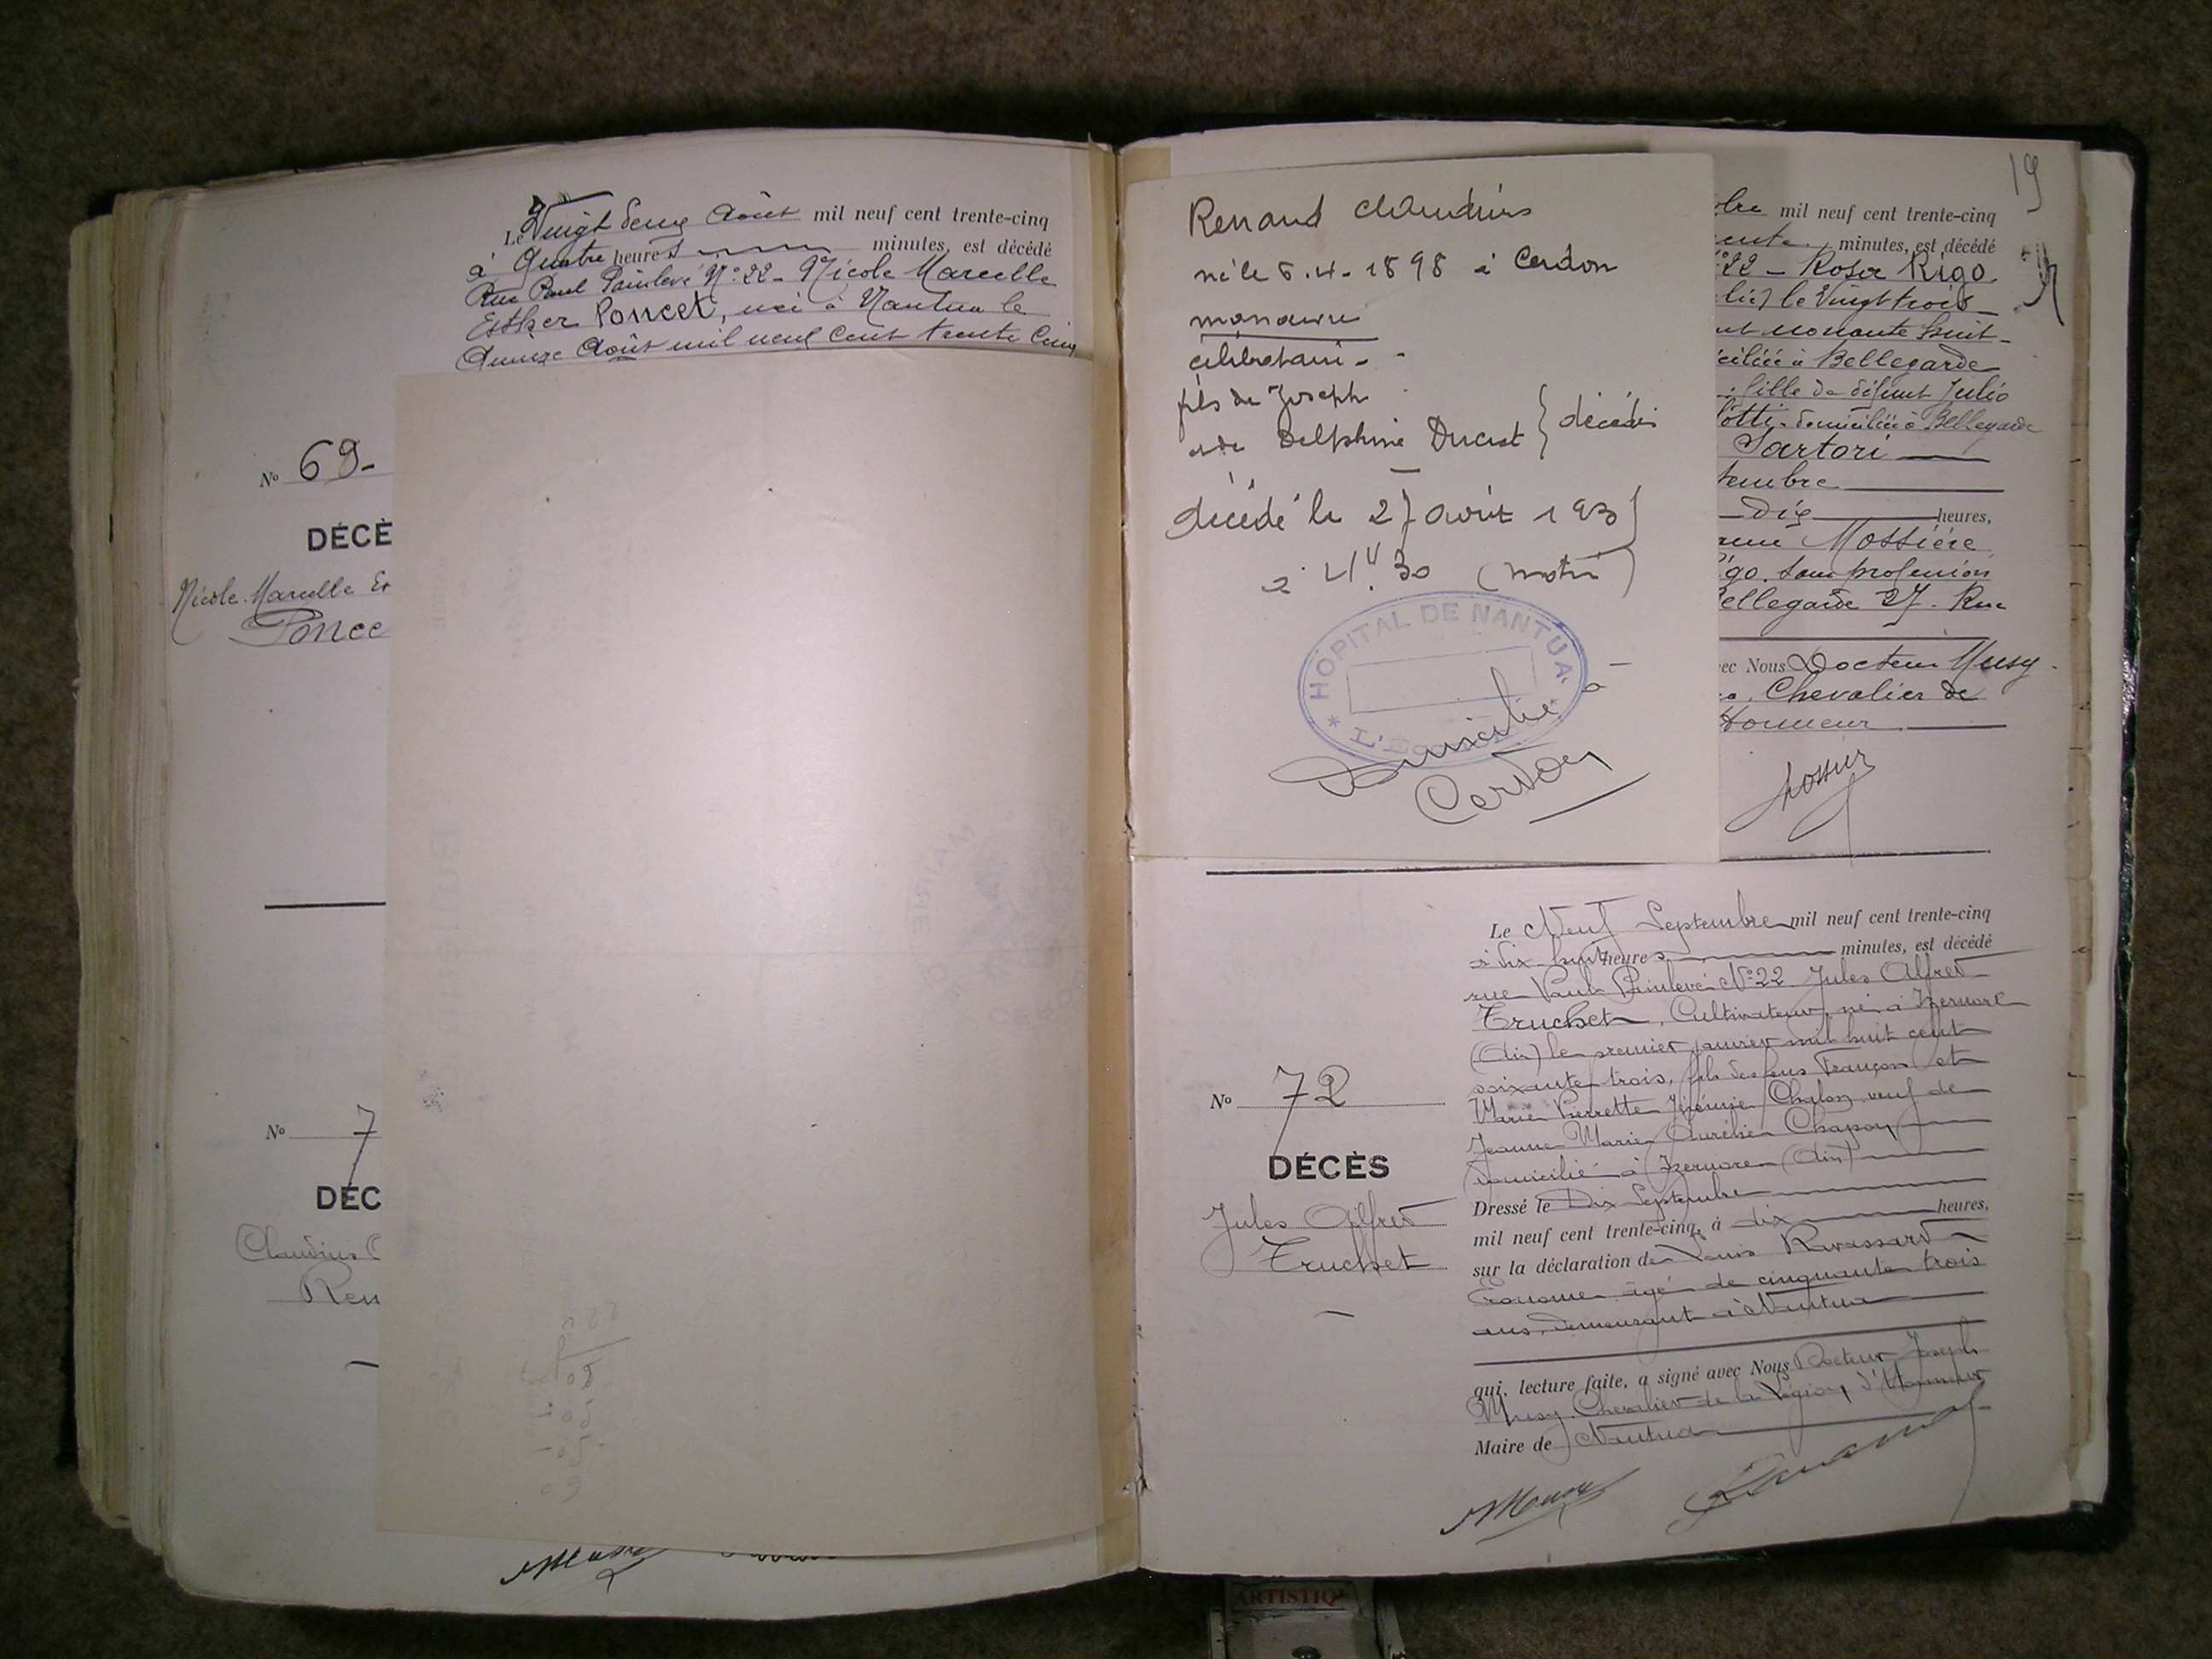 Le Vingt deux Août mil neuf cent trente-cinq
à Quatre heures minutes, est décédé
Rue Paul Painlevé N° 22 - Nicole Marcelle
Esther Poncet, née à Nantua le
Quinze Août mil neuf cent trente Cinq
N° 69-
DÉCÈ
Nicole Marcelle Es
Ponce
N° 7
DÉC
Claudius C
Ren
19
Renaud Claudius
né le 5.4.1898 à Cerdon
manœuvre
célibataire -
fils de Joseph
et de Delphine Ducret } décédés
décédé le 27 août 1935
à 4h 30 (matin)
HÔPITAL DE NANTUA
Domicilié à
Cerdon
bre mil neuf cent trente-cinq
ente minutes, est décédé
22 - Rosa Rigo
lie) le Vingt trois
nt nonante huit -
ciliée à Bellegarde
fille de défunt Julio
otti, domiciliée à Bellegarde
Sartori
tembre
Dix heures,
Mossière
igo. sans profession
ellegarde 27. Rue
ec Nous Docteur Musy
Chevalier de
Honneur
N° 72
DÉCÈS
Jules Alfred
Truchet
Le Neuf Septembre mil neuf cent trente-cinq
à dix-huit heures minutes, est décédé
rue Paul Painlevé N° 22 Jules Alfred
Truchet, Cultivateur, né à Izernore
(Ain) le premier janvier mil huit cent
soixante trois, fils des feus François et
Marie Pierrette Chalon, veuf de
Jeanne Marie Aurélie Chapon
domicilié à Izernore (Ain)
Dressé le Dix Septembre
mil neuf cent trente-cinq, à dix heures,
sur la déclaration de Louis Ravassard
Econome âgé de cinquante trois
ans, demeurant à Nantua
qui, lecture faite, a signé avec Nous Docteur Joseph
Musy, Chevalier de la Légion d'Honneur
Maire de Nantua
ARTISTIQ